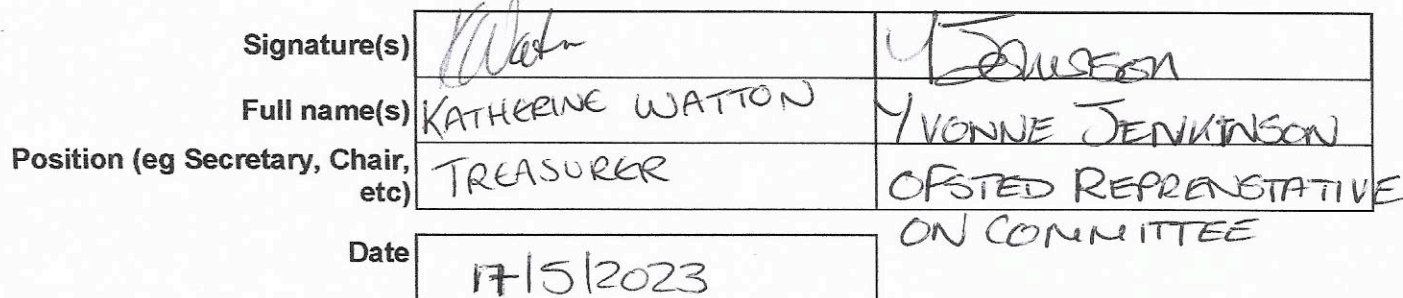 Signature(s)
Full name(s) KATHERINE WATTON YVONNE JENKINSON
Position (eg Secretary, Chair, TREASURER OFSTED REPRENSTATIVE
etc) ON COMMITTEE
Date 17/5/2023